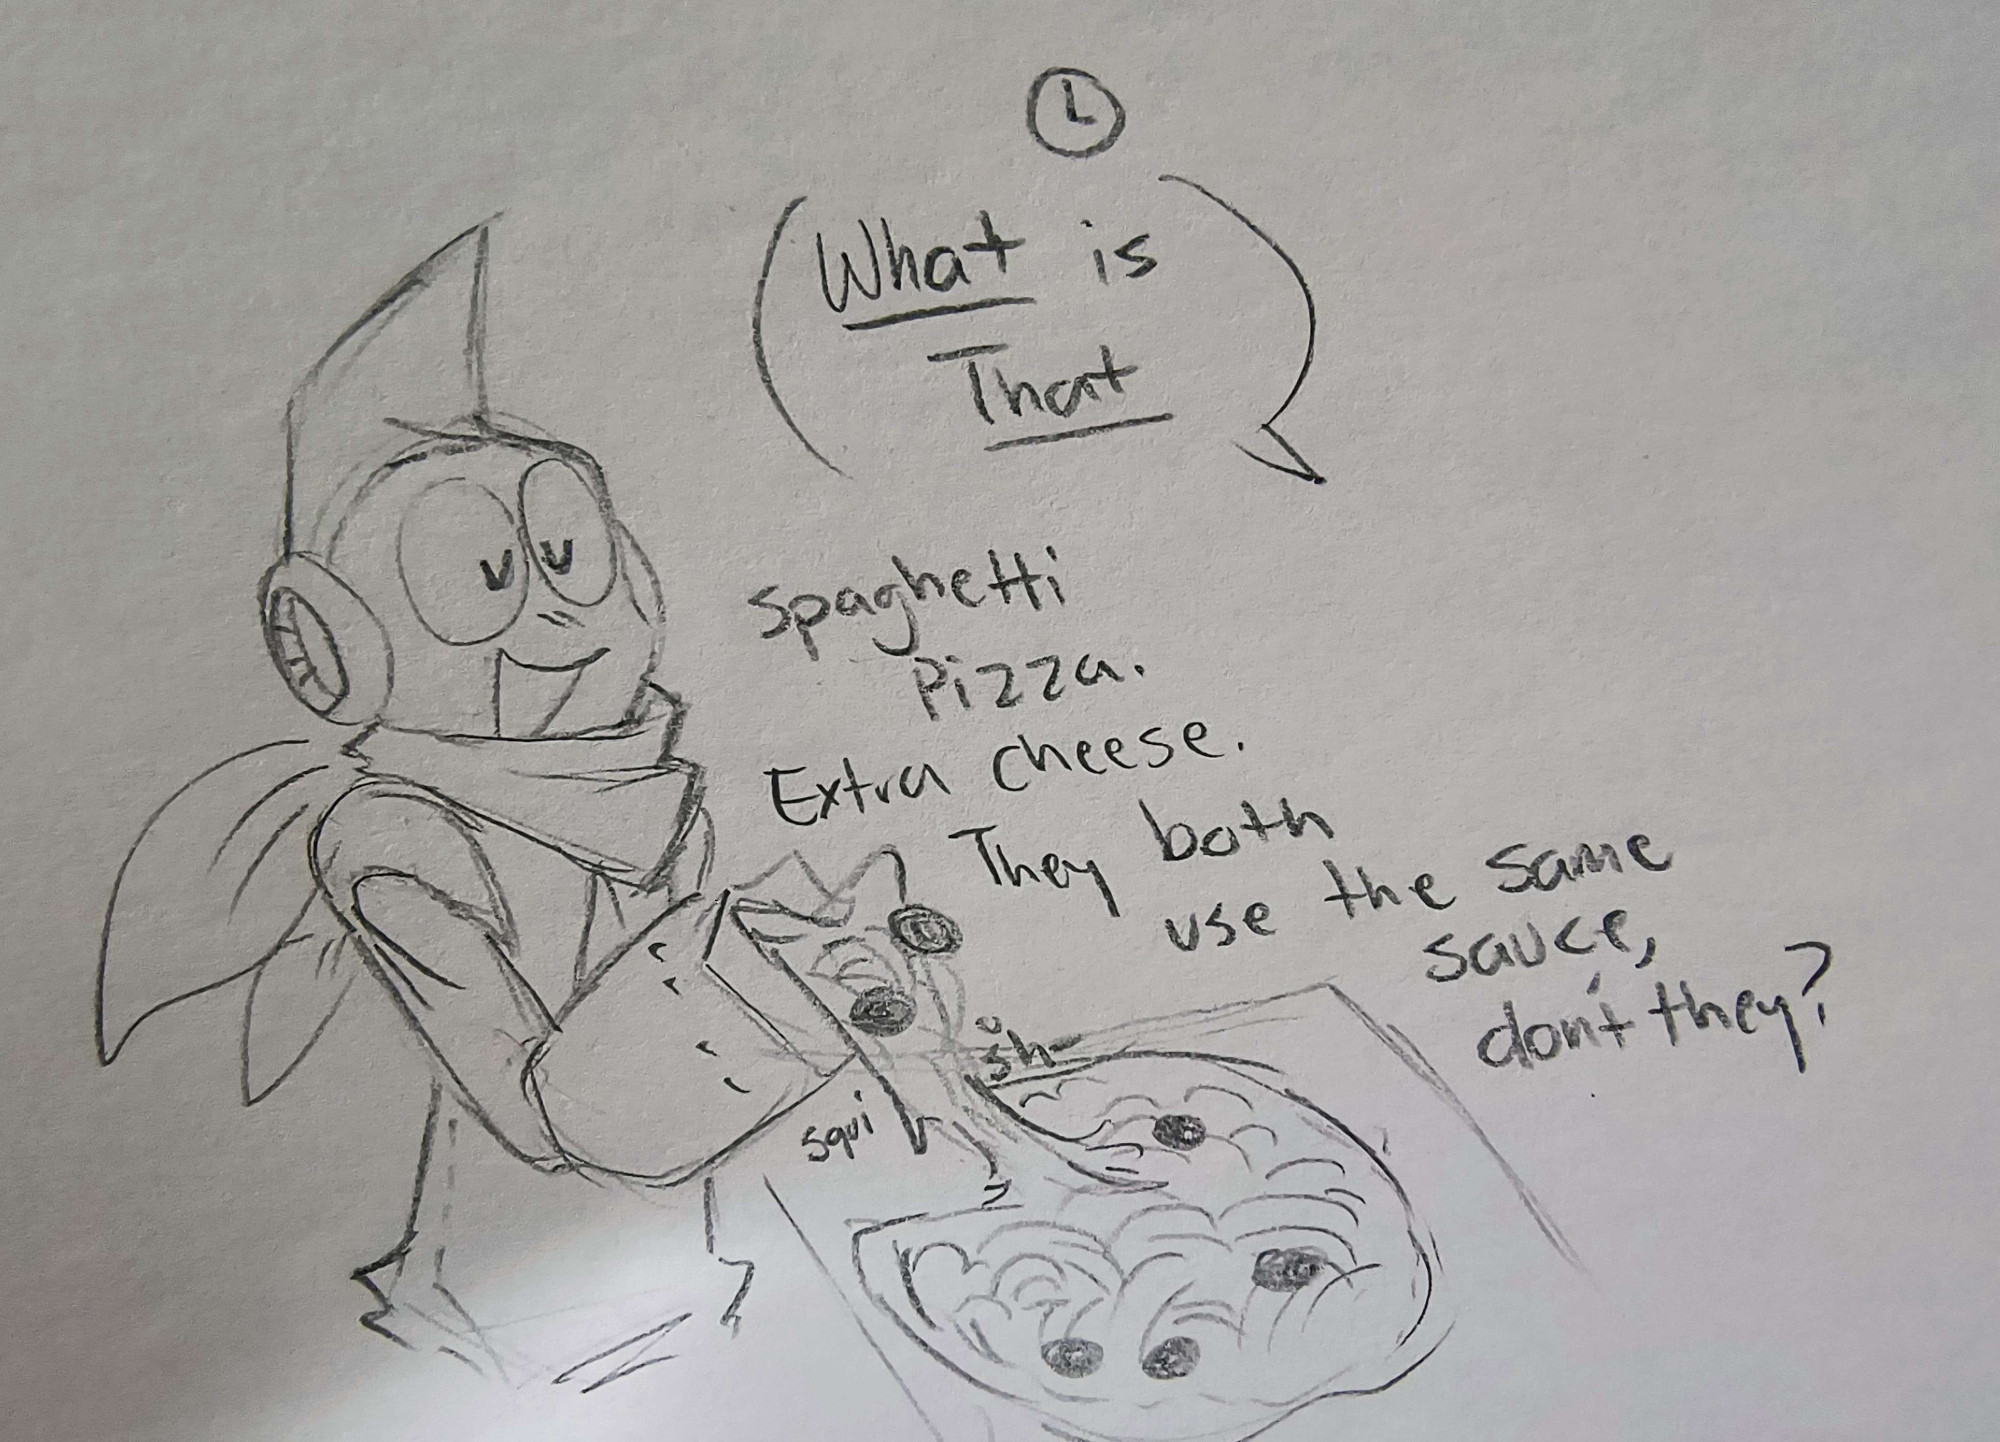 What is
That
Spaghetti
Pizza.
Extra cheese.
They both
use the same
sauce,
don't they?
sh-
squi